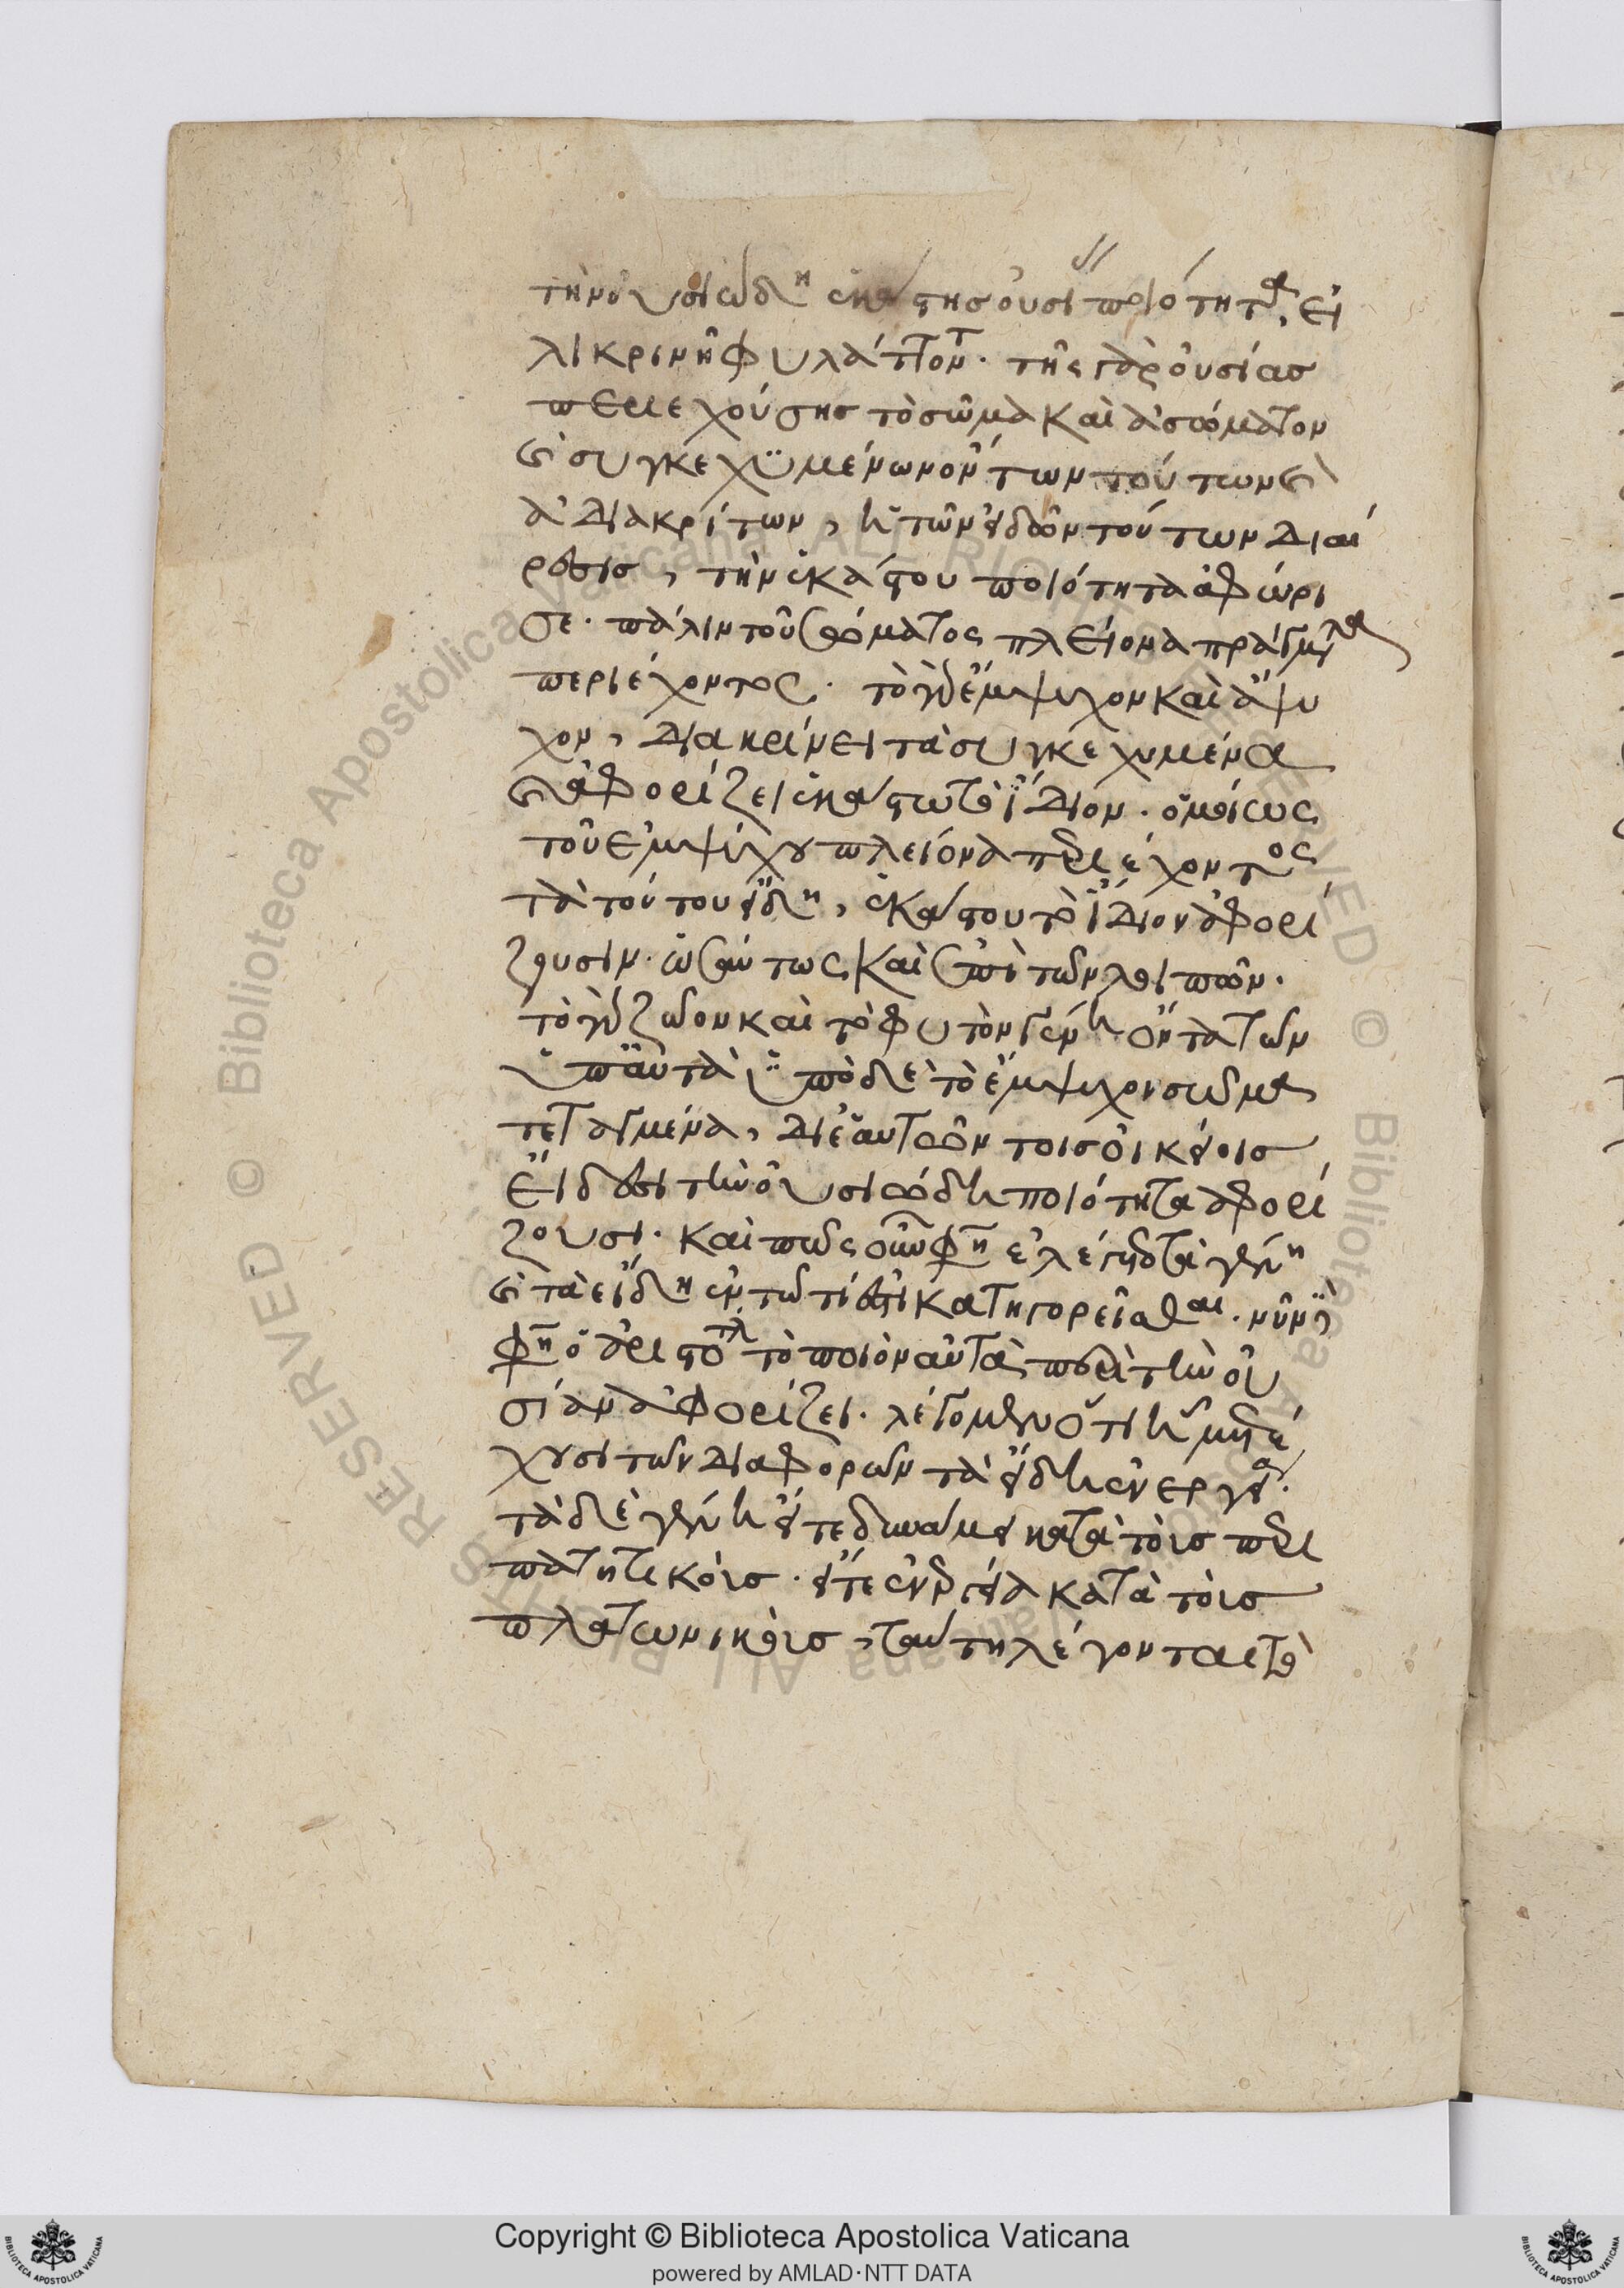 τὴν οὐσιώδη ἑκάστης οὐσι ποιότητα, εἰ
λικρινῆ φυλάττοντ. τῆς γὰρ οὐσίας
περιεχούσης τὸ σῶμα καὶ ἀσώματον
καὶ συγκεχϋμένων ὄντων τούτων καὶ
ἀδιακρίτων, ἡ τῶν εἰδῶν τούτων διαί
ρεσις, τὴν ἑκάστου ποιότητα ἀφώρι
σε. πάλιν τοῦ σώματος πλείονα πράγματα
περιέχοντος. τὸ γὰρ ἔμψυχον καὶ ἄψυ
χον, διακρίνει τὰ συγκεχυμένα
καὶ ἀφορίζει ἑκάστω τὸ ἴδιον. ὁμοίως
τοῦ ἐμψύχου πλείονα περιέχοντος
τὰ τούτου εἴδη, ἑκάστου τὸ ἴδιον ἀφορί
ζουσιν. ὡσαύτως καὶ ἐπὶ τῶν λοιπῶν.
τὸ γὰρ ζῶον καὶ τὸ φυτὸν γένη ὄντα τῶν
ὑπ αὐτὰ ὑπὸ δὲ τὸ ἔμψυχον σῶμα
τεταγμένα, δι ἑαυτῶν τοῖς οἰκείοις
εἴδεσι τὴν οὐσιώδη ποιότητα ἀφορί
ζουσι. καὶ πῶς οὖν φη ἐλέγετο τὰ γένη
καὶ τὰ εἴδη ἐν τῶ τί ἐστι κατηγορεῖσθαι. νῦν
φη ὁ ἀριστοτλ τὸ ποιὸν αὐτὰ περὶ τὴν οὐ
σίαν ἀφορίζει. λέγομεν ὅτι ἡ μὴ ἔ
χουσι τῶν διαφορῶν τὰ εἴδη ἐνεργεία.
τὰ δὲ γένη εἴτε δυνάμει κατὰ τοὺς περι
πατητικοὺς. εἴτε ἐνεργεία κατὰ τοὺς
πλατωνικοὺς, ταύτη λέγονται τὸ